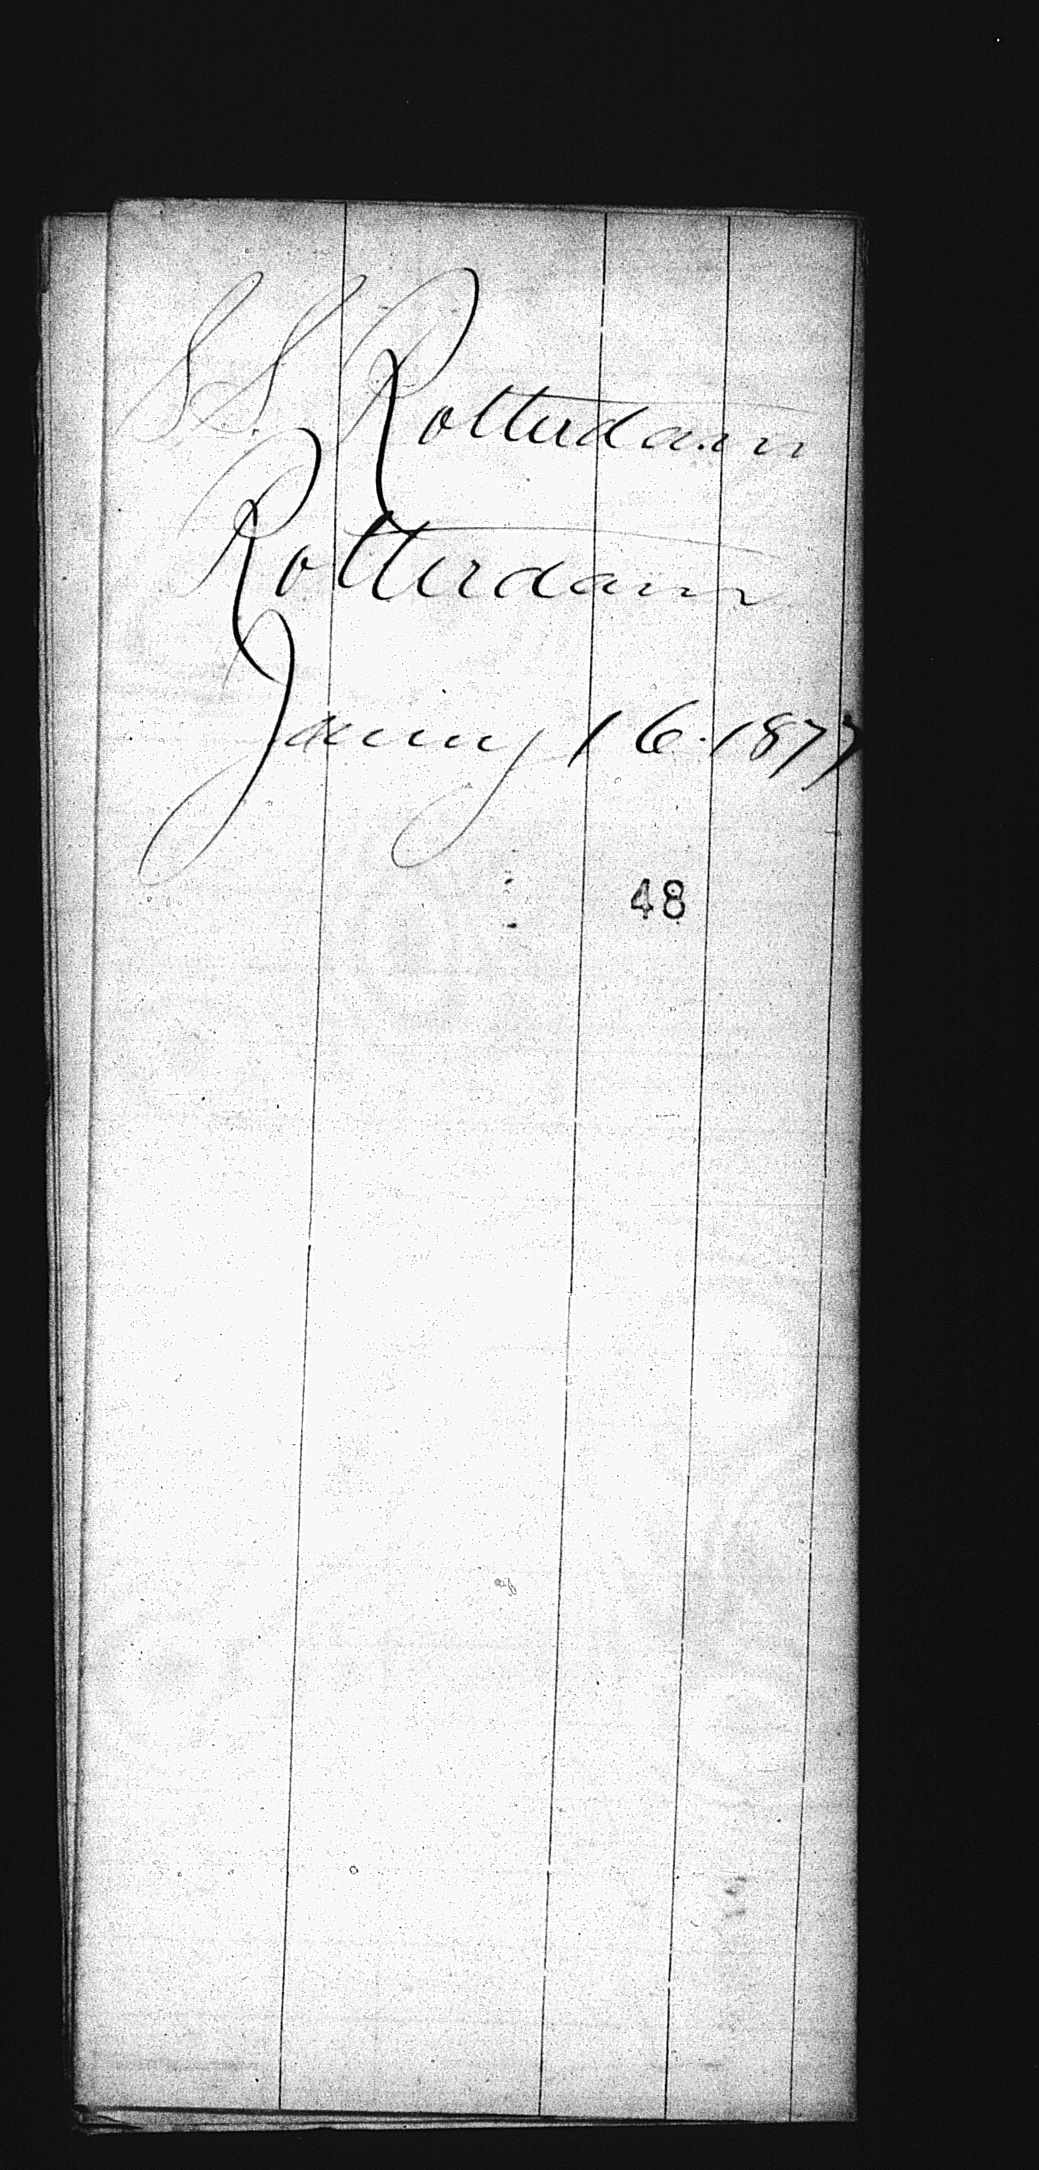 S.S. Rotterdam
Rotterdam
Jany 16. 1877
48